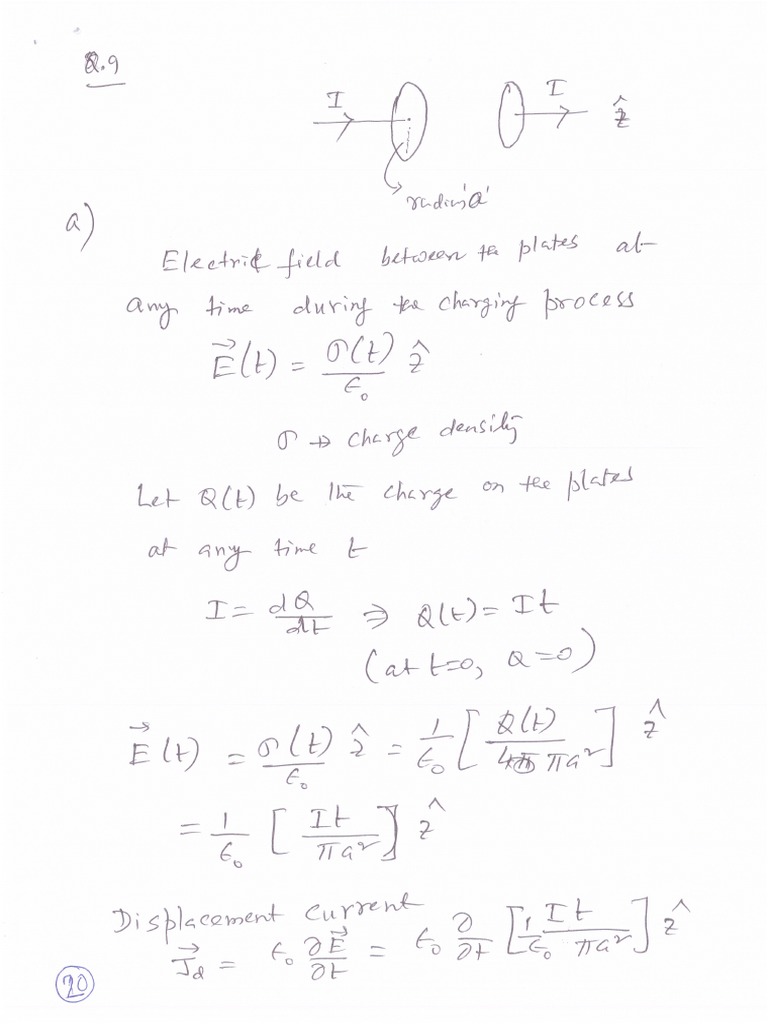 Q.9
I I ẑ
radius 'a'
a)
Electric field between the plates at
any time during the charging process
E⃗(t) = σ(t)/ε₀ ẑ
σ → charge density
Let Q(t) be the charge on the plates
at any time t
I = dQ/dt ⇒ Q(t) = It
(at t=0, Q=0)
E⃗(t) = σ(t)/ε₀ ẑ = 1/ε₀ [Q(t)/πa²] ẑ
= 1/ε₀ [It/πa²] ẑ
Displacement current
J⃗d = ε₀ ∂E⃗/∂t = ε₀ ∂/∂t [1/ε₀ It/πa²] ẑ
20